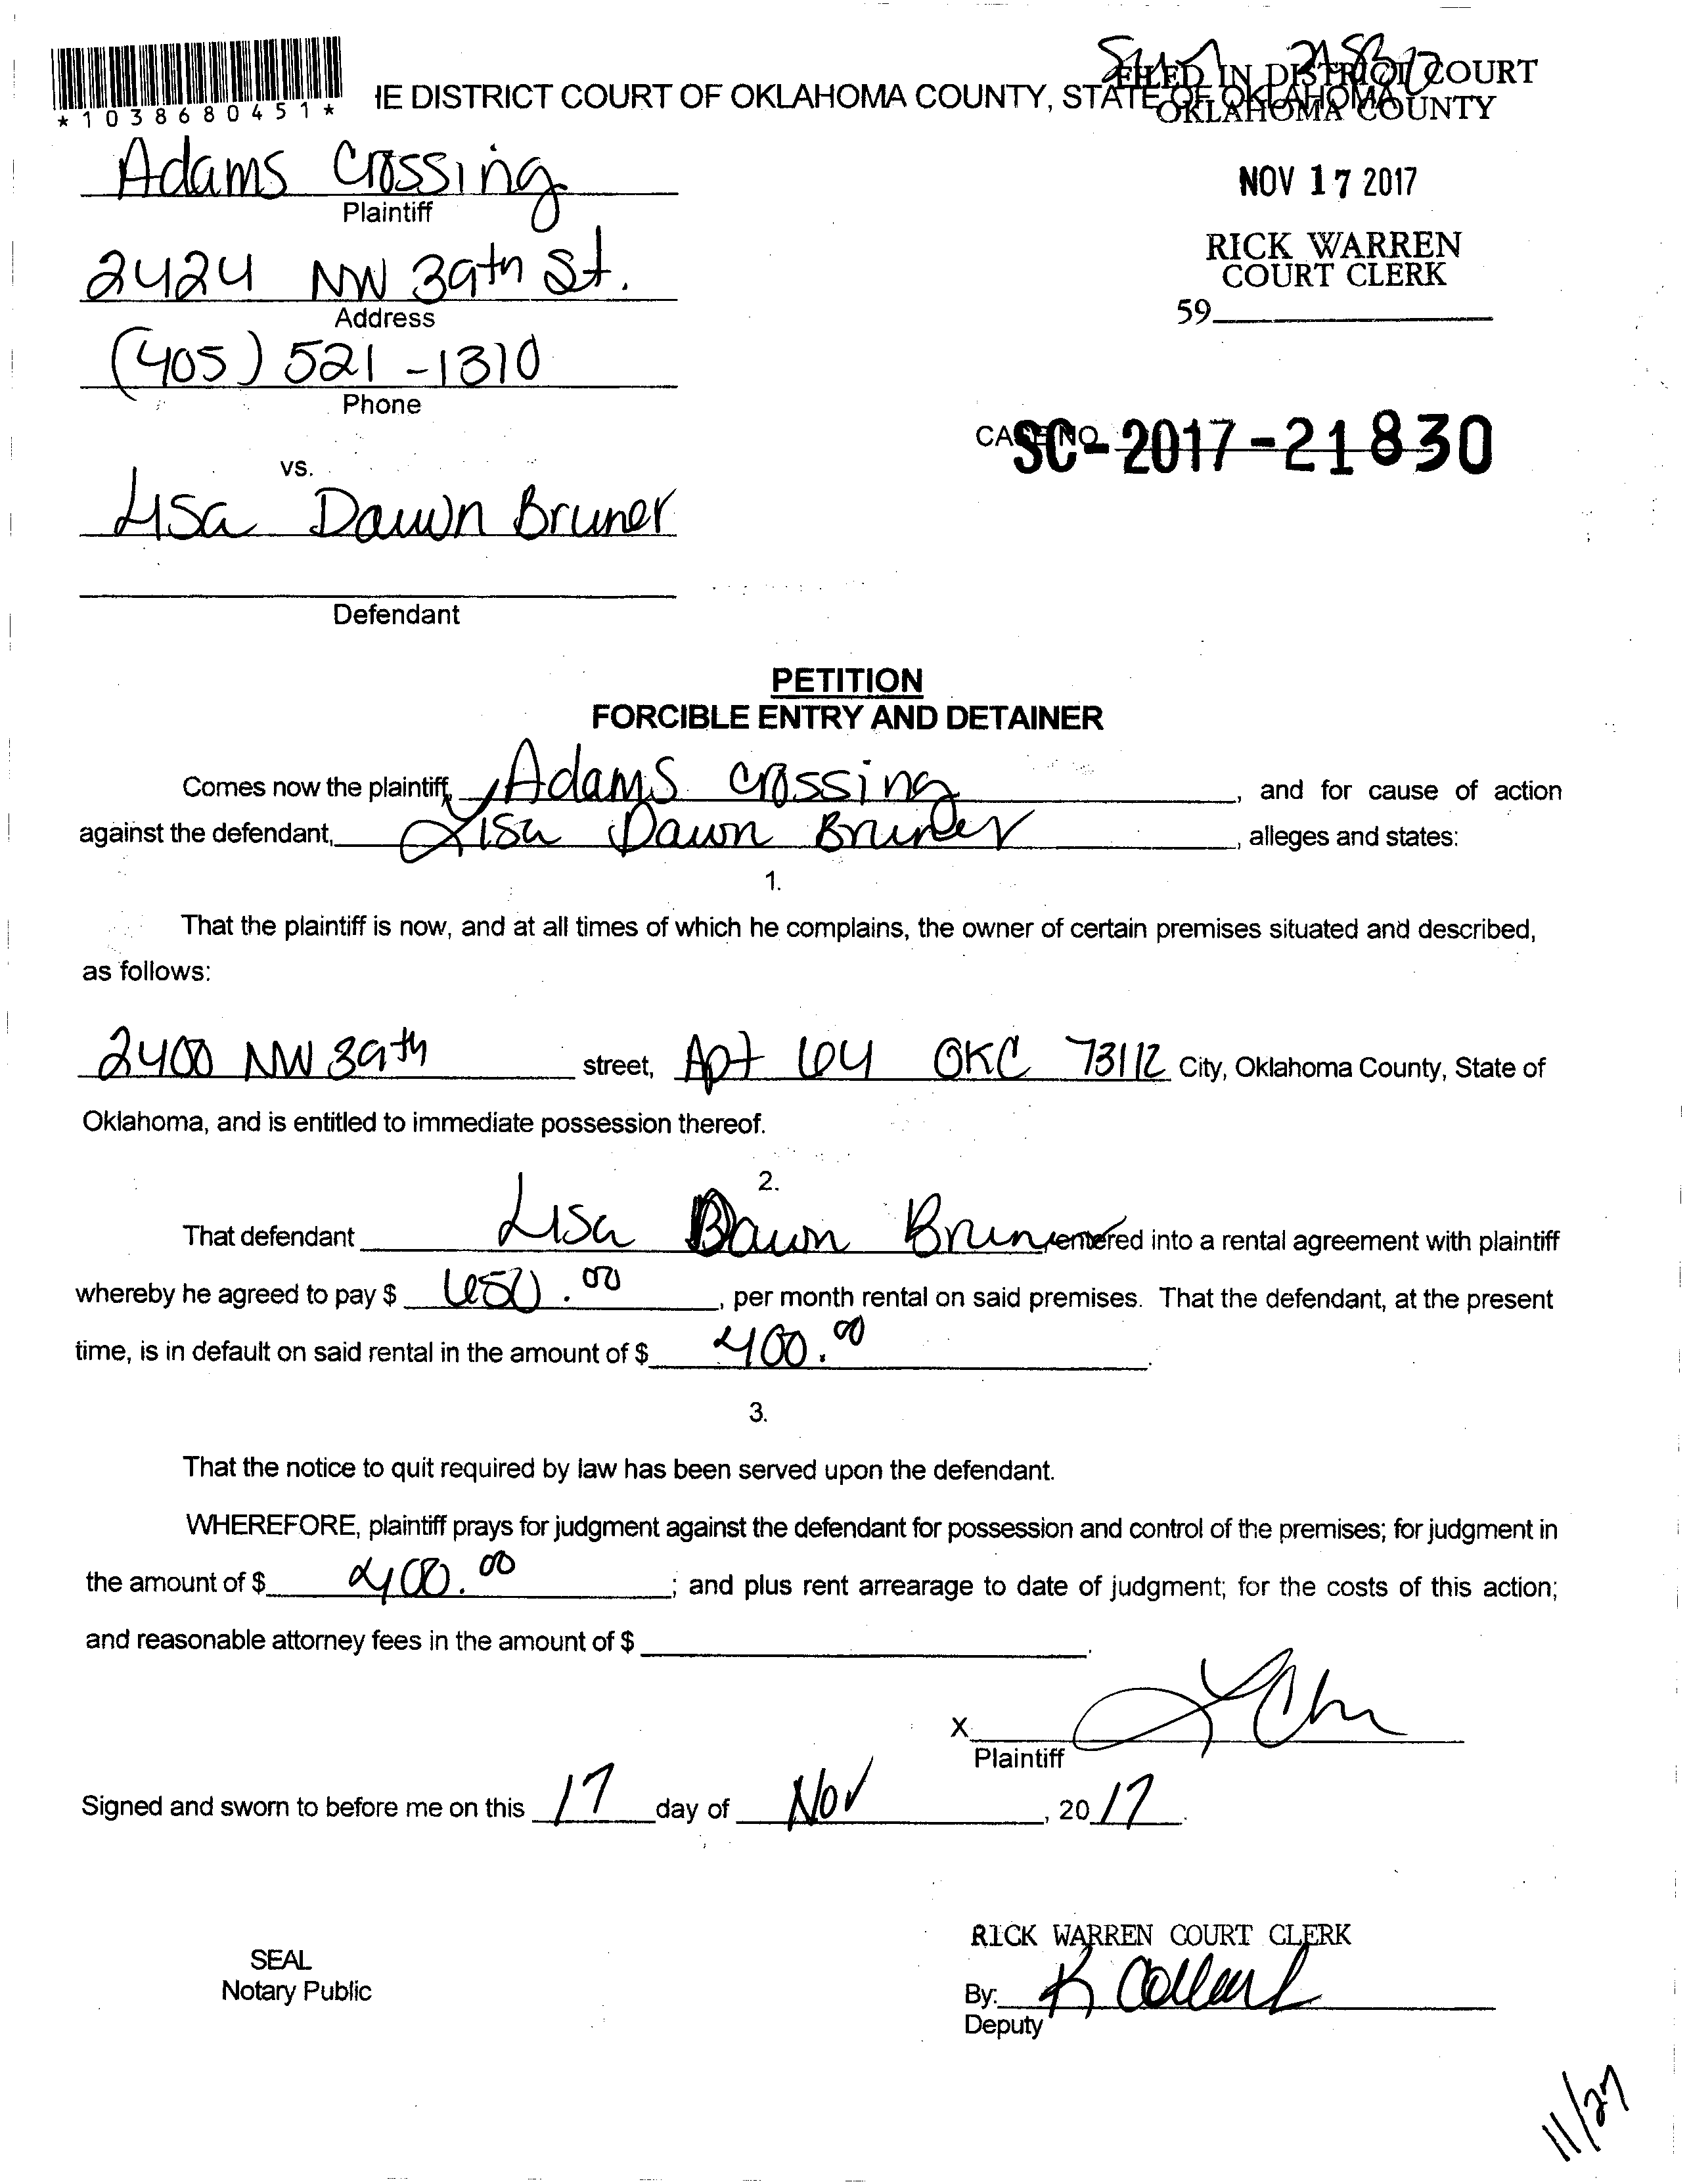 FILED IN DISTRICT COURT
*1038680451* IE DISTRICT COURT OF OKLAHOMA COUNTY, STATE OF OKLAHOMA
OKLAHOMA COUNTY
Adams Crossing
Plaintiff
NOV 17 2017
2424 NW 39th St.
Address
RICK WARREN
COURT CLERK
59
(405) 521-1310
Phone
CASE NO. SC-2017-21830
vs.
Lisa Dawn Bruner
Defendant
PETITION
FORCIBLE ENTRY AND DETAINER
Comes now the plaintiff, Adams Crossing, and for cause of action
against the defendant, Lisa Dawn Bruner, alleges and states:
1.
That the plaintiff is now, and at all times of which he complains, the owner of certain premises situated and described,
as follows:
2400 NW 39th street, Apt 104 OKC 73112 City, Oklahoma County, State of
Oklahoma, and is entitled to immediate possession thereof.
2.
That defendant Lisa Dawn Bruner entered into a rental agreement with plaintiff
whereby he agreed to pay $ 650.00, per month rental on said premises. That the defendant, at the present
time, is in default on said rental in the amount of $ 400.00.
3.
That the notice to quit required by law has been served upon the defendant.
WHEREFORE, plaintiff prays for judgment against the defendant for possession and control of the premises; for judgment in
the amount of $ 400.00; and plus rent arrearage to date of judgment; for the costs of this action;
and reasonable attorney fees in the amount of $ .
X
Plaintiff
Signed and sworn to before me on this 17 day of Nov, 2017.
RICK WARREN COURT CLERK
SEAL
Notary Public
By:
Deputy
11/27